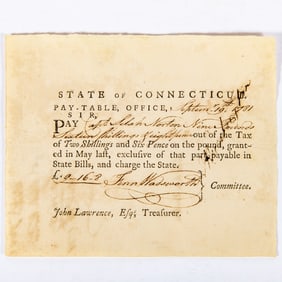 STATE OF CONNECTICUT.
PAY-TABLE, OFFICE, Septem 19th 1781
SIR,
PAY Capt Norton Nine Pounds
Sixteen shillings & eight pence out of the Tax
of Two Shillings and Six Pence on the pound, grant-
ed in May last, exclusive of that part payable in
State Bills, and charge the State.
£.9-16-8 Fenn Wadsworth
Committee.
John Lawrence, Esq; Treasurer.